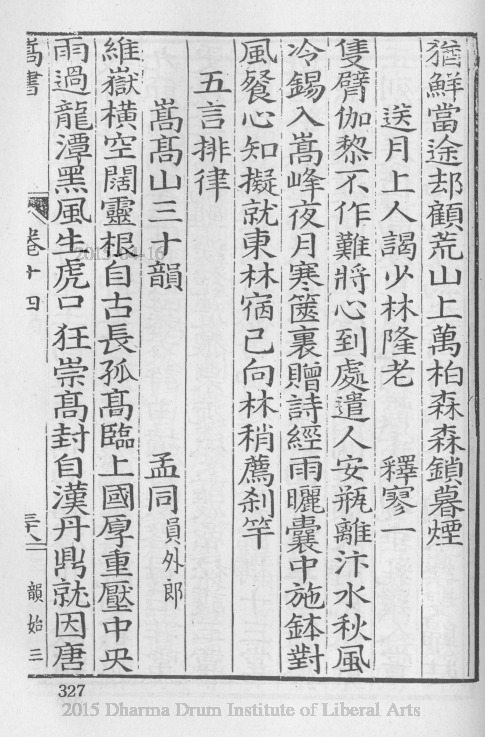 猶鮮當途却顧荒山上萬柏森森鎖暮煙
送月上人謁少林隆老 釋寥一
隻臂伽黎不作難將心到處遣人安瓶離汴水秋風
冷錫入嵩峰夜月寒篋裏贈詩經雨曬囊中施鉢對
風餐心知擬就東林宿已向林稍薦刹竿
五言排律
嵩髙山三十韻 孟同員外郎
維嶽橫空闊靈根自古長孤髙臨上國厚重壓中央
雨過龍潭黑風生虎口狂崇髙封自漢丹鼎就因唐
嵩書 卷十四 三八 韻始三
327
2015 Dharma Drum Institute of Liberal Arts